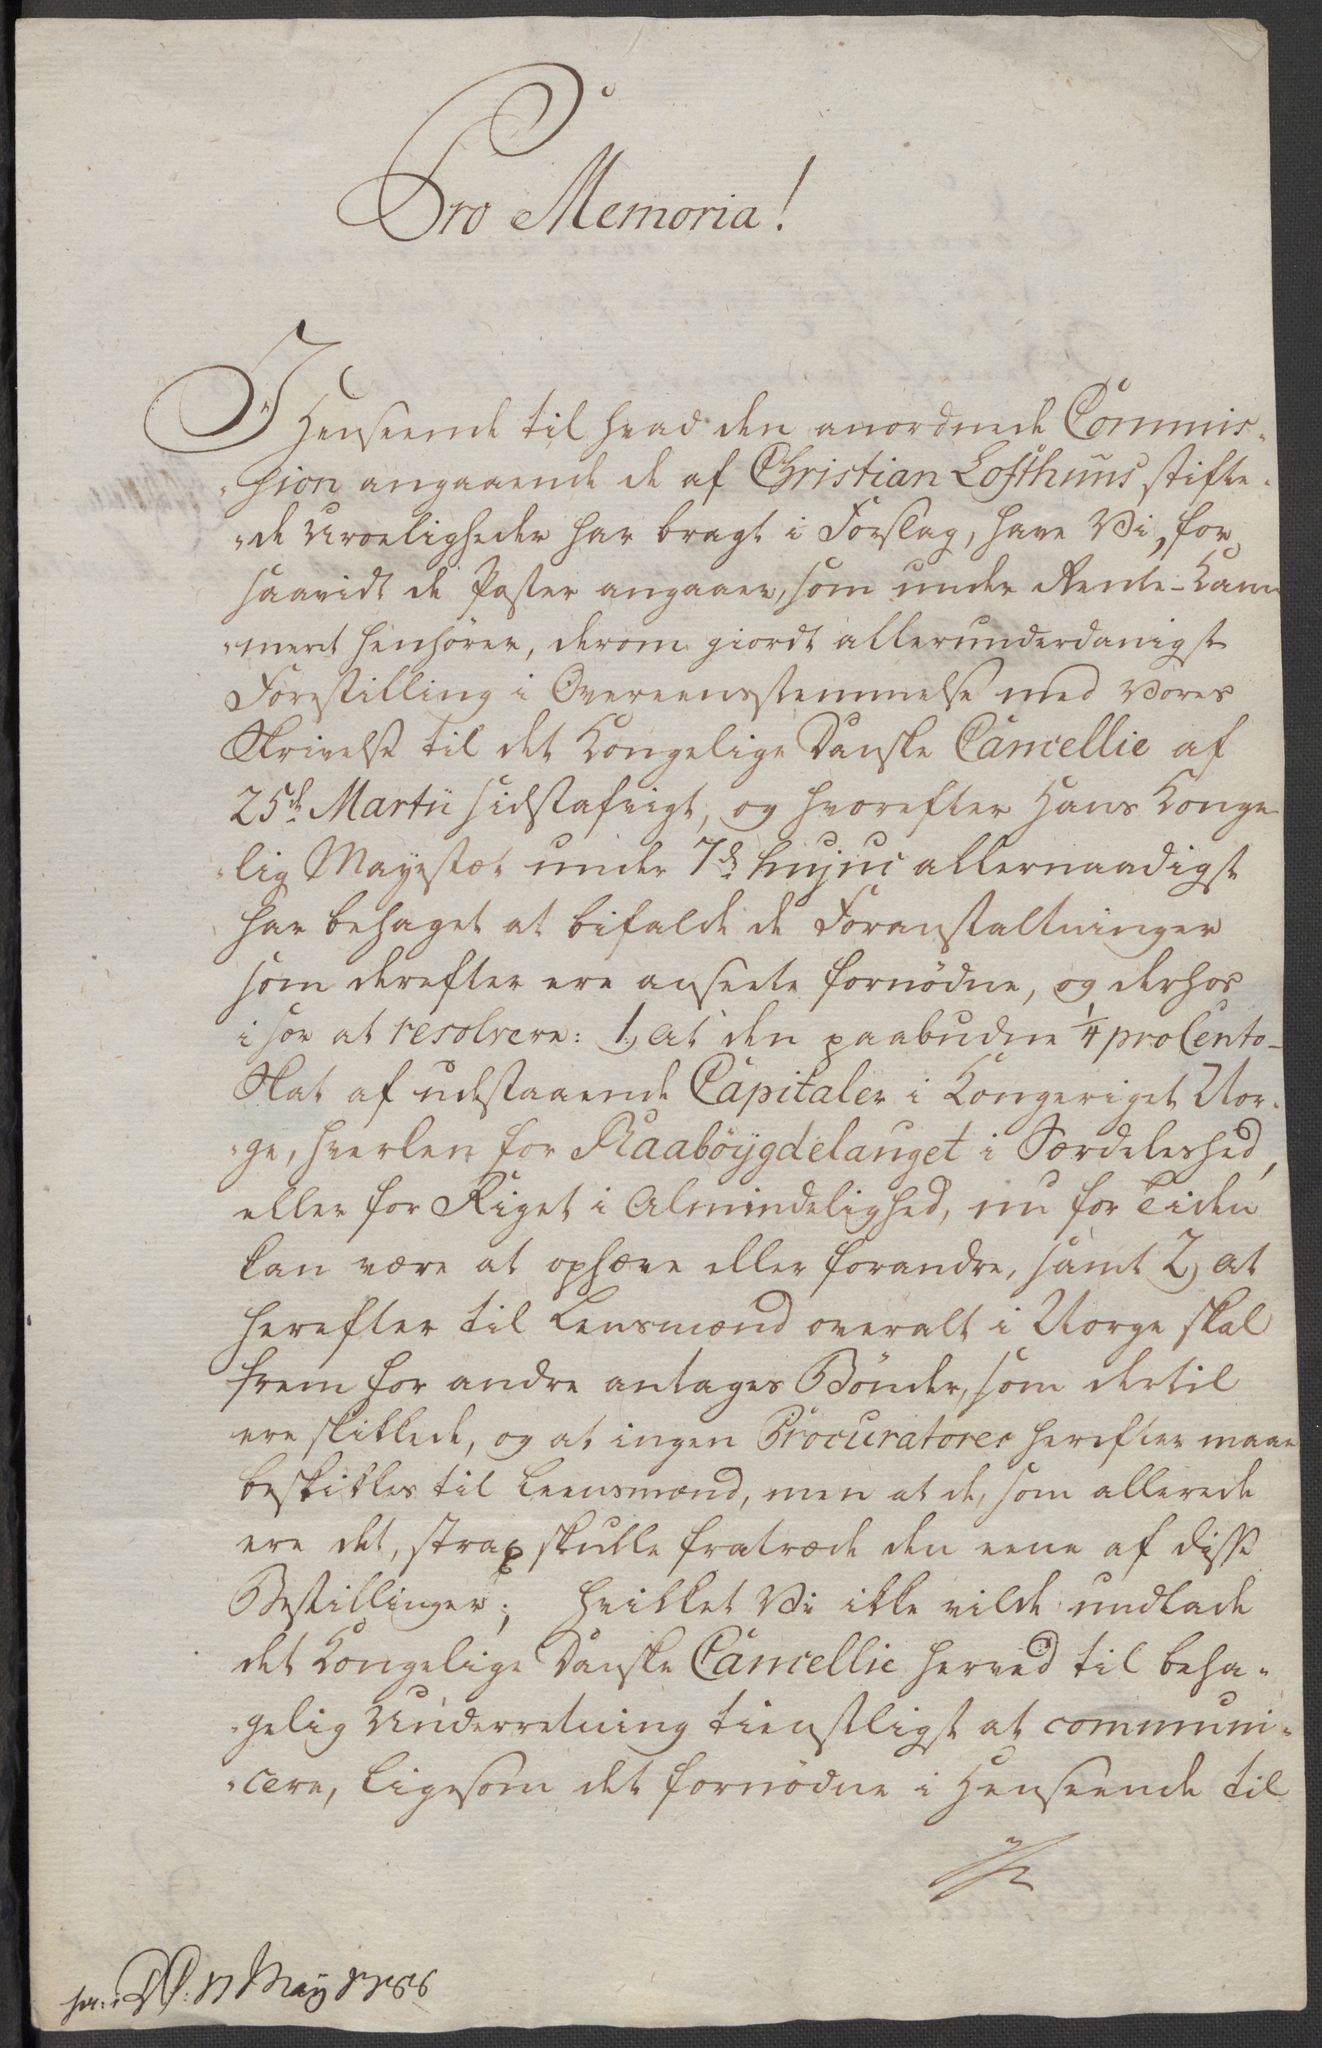 Pro Memoria!
I Henseende til hvad den anordnede Commis-
-sion angaaende de af Christian Lofthuus stifte-
-de Uroeligheder har bragt i Forslag, have Vi, for
saavidt de Poster angaaer, som under Rente-Kam
-meret henhörer, derom giordt allerunderdanigst
Forestilling i Overeensstemmelse med Vores
Skrivelse til det Kongelige Danske Cancellie af
25de Martii sidstafvigt, og hvorefter Hans Konge
-lig Mayestæt under 7de hujus allernaadigst
har behaget at bifalde de Foranstaltninger
som derefter ere ansete fornödne, og derhos
i sær at resolvere: 1, at den paabudne 1/4 pro Cento-
Skat af udstaaende Capitaler i Kongeriget Nor-
-ge, hverken for Raaböygdelauget i Særdeleshed,
eller for Riget i Almindelighed, nu for Tiden
kan være at ophæve eller forandre, samt 2, at
herefter til Lensmænd overalt i Norge skal
frem for andre antages Bönder, som dertil
ere skikkede, og at ingen Procuratorer herefter maae
beskikkes til Leensmænd, men at de, som allerede
ere det, strax skulle fratræde den eene af disse
Bestillinger; hvilket Vi ikke vilde undlade
det Kongelige Danske Cancellie herved til beha-
-gelig Underretning tienstligst at communi-
-cere, ligesom det fornödne i Henseende til
17 May 1788